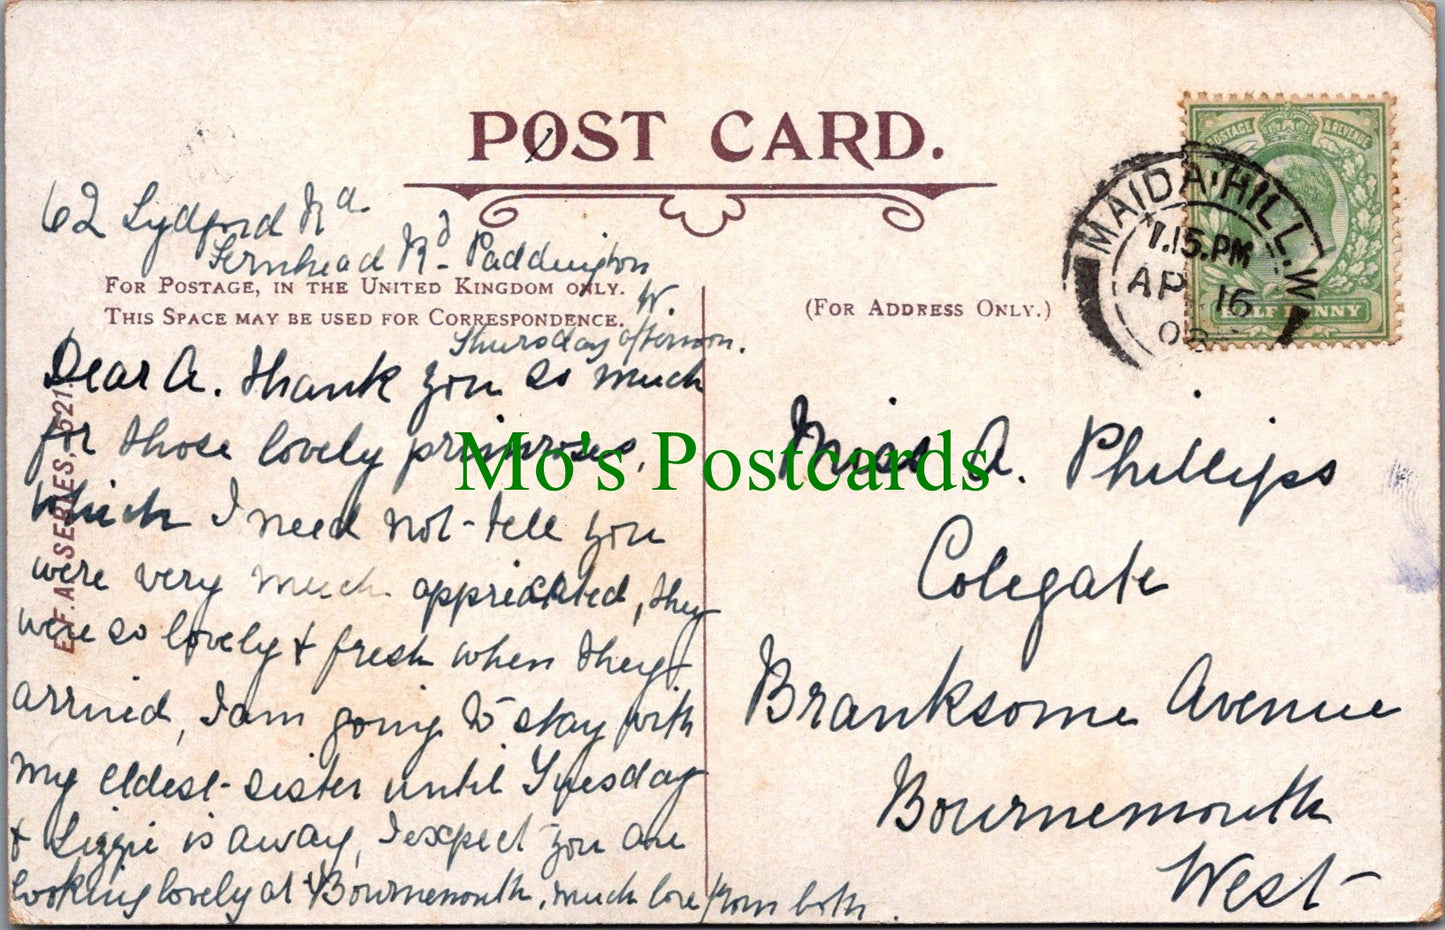 POST CARD.
62 Lydford Rd
Fernhead Rd Paddington
W.
Thursday afternoon.
FOR POSTAGE, IN THE UNITED KINGDOM ONLY.
THIS SPACE MAY BE USED FOR CORRESPONDENCE.
(FOR ADDRESS ONLY.)
Dear A. Thank you so much
for those lovely primroses,
which I need not tell you
were very much appreciated, they
were so lovely & fresh when they
arrived, I am going to stay with
my eldest sister until Tuesday
& Lizzie is away, I expect you are
looking lovely at Bournemouth, much love from both.
Miss A. Phillips
Colegate
Branksome Avenue
Bournemouth
West
E.F.A. SERIES, 521.
POSTAGE & REVENUE
HALF PENNY
MAIDA HILL. W
7.15.PM
AP 16
08
Mo's Postcards